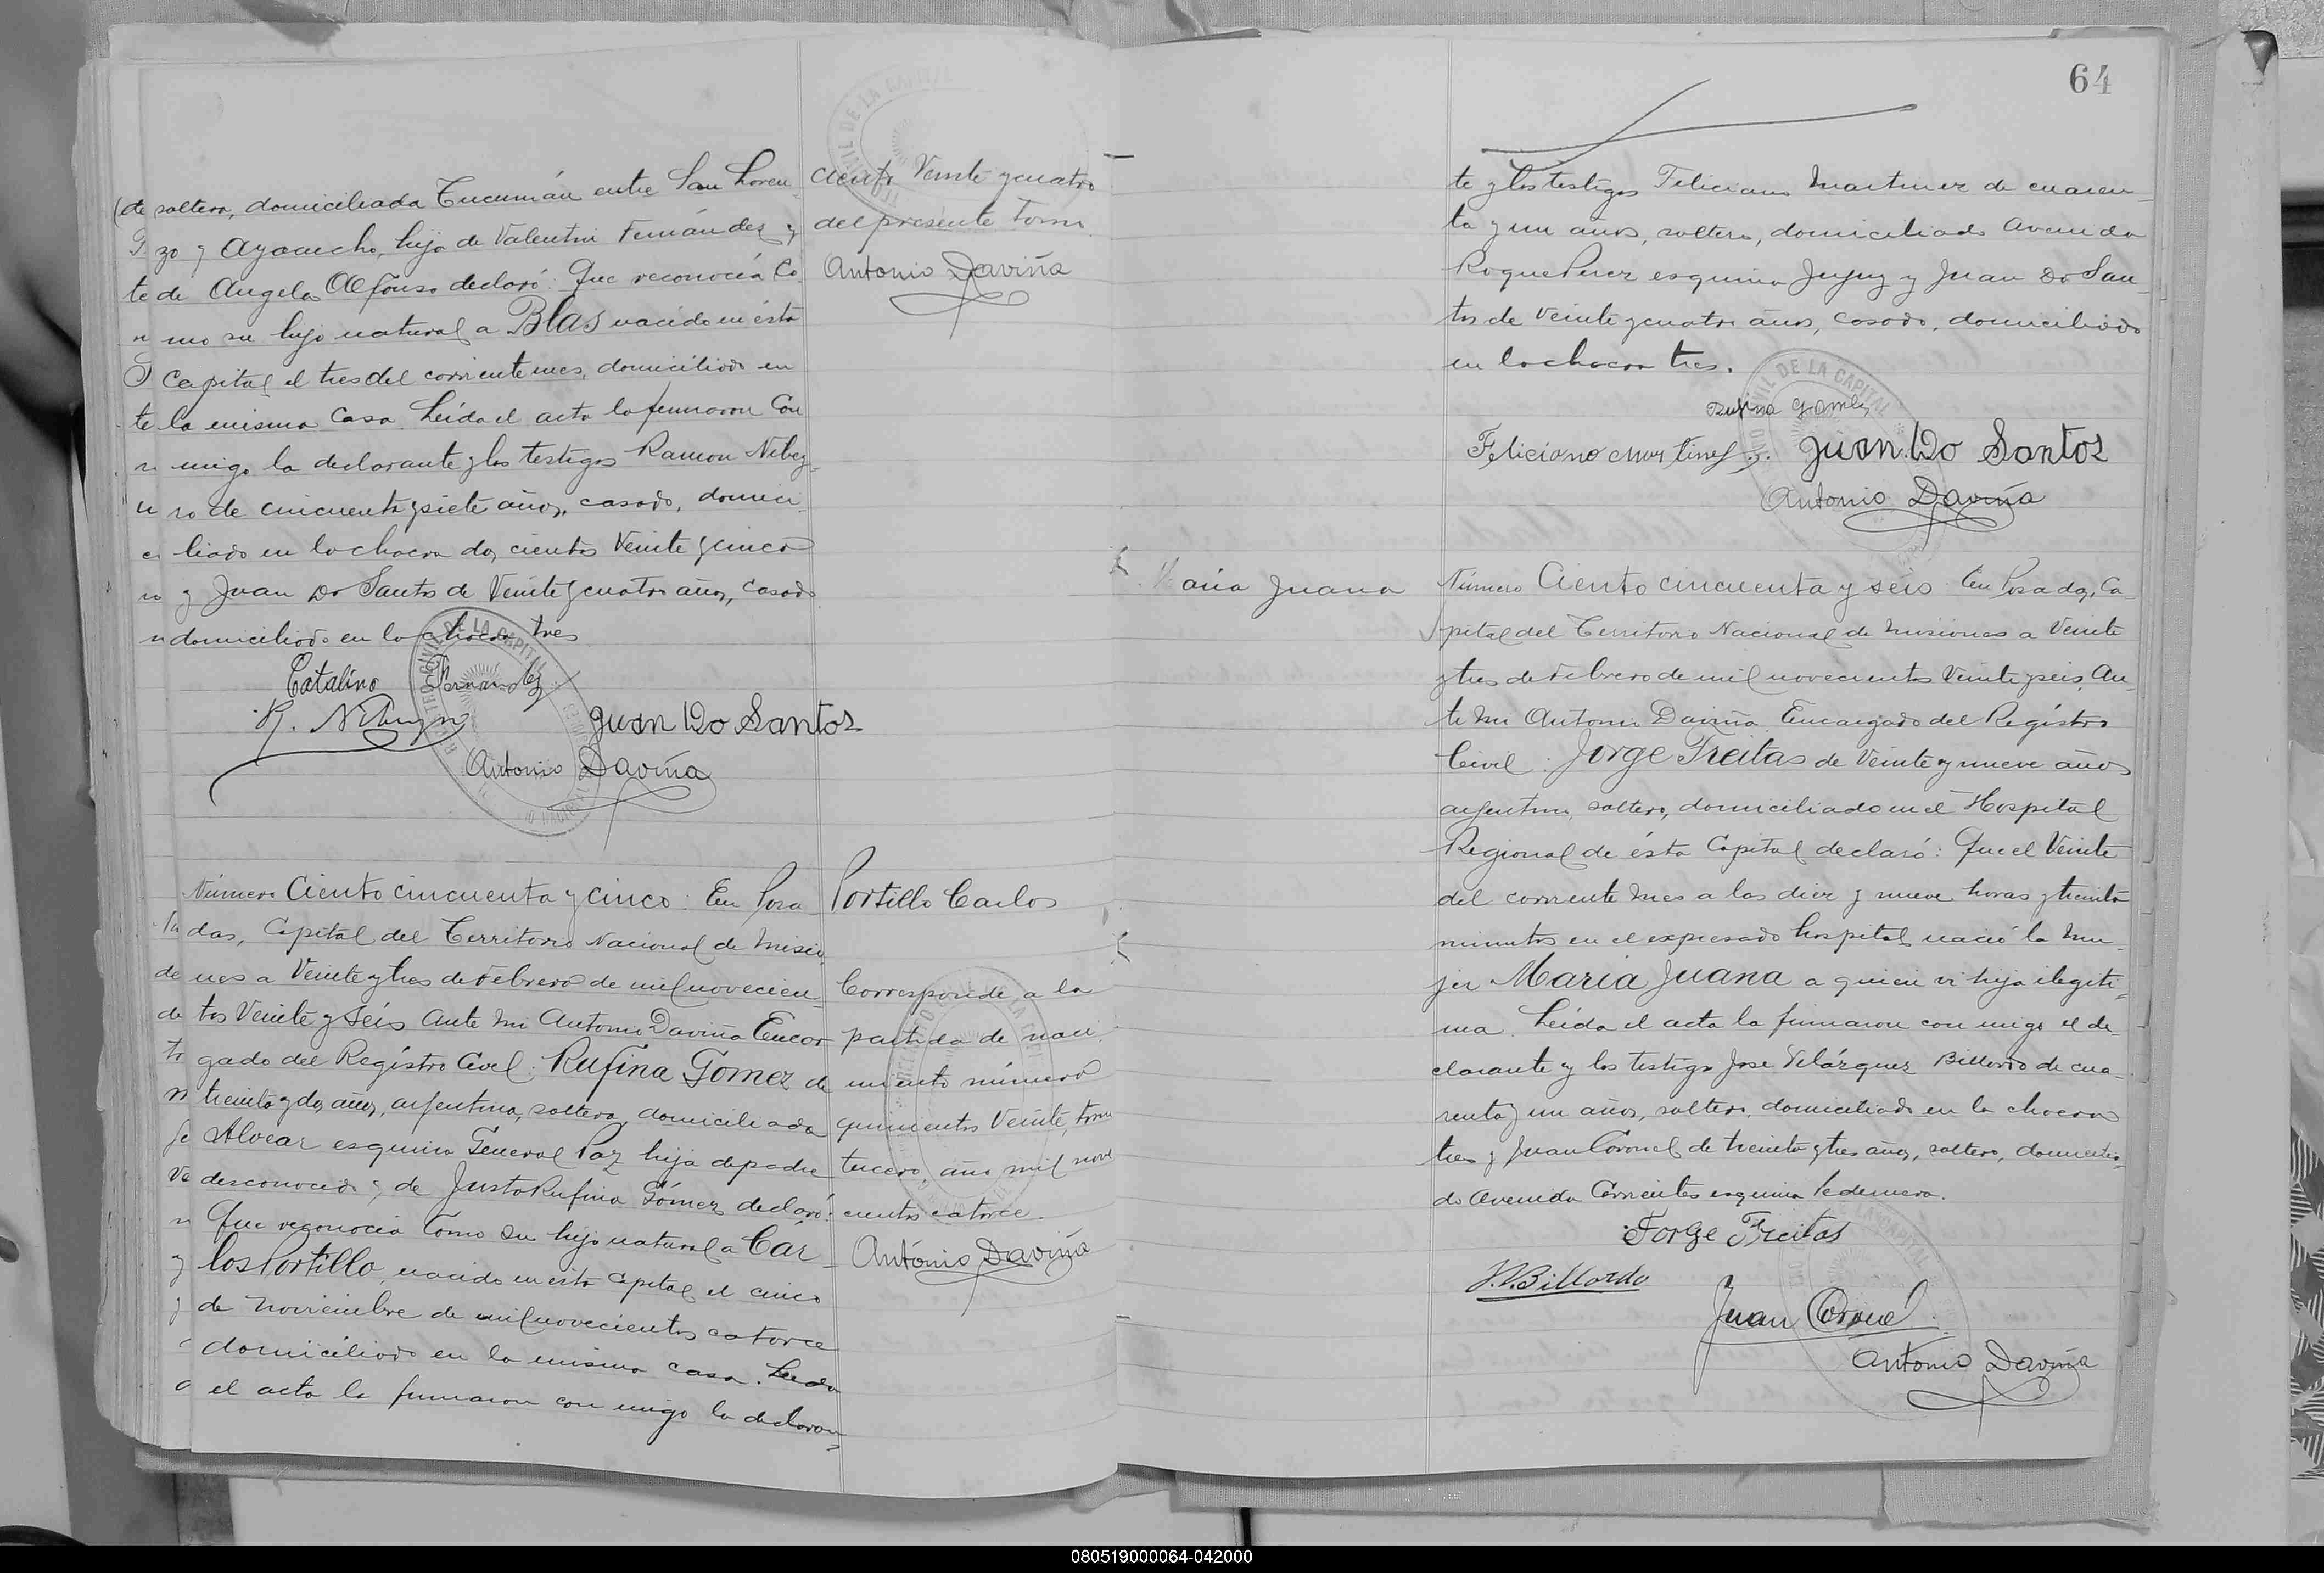 soltera, domiciliada Tucumán entre San Loren-
zo y Ayacucho, hija de Valentin Fernández y
de Angela Alfonso declaró: Que reconocía co-
mo su hijo natural a Blas nacido en ésta
Capital el tres del corriente mes, domiciliado en
la misma casa. Leída el acta la firmaron con
migo la declarante y los testigos Ramon Nibey-
ro de cincuenta y siete años, casado, domici-
liado en la chacra dos cientos veinte y cinco
y Juan Do Santos de veinte y cuatro años, casado
domiciliado en la chacra tres
Catalino Fernandez
R. Nibeyro
Juan Do Santos
Antonio Daviña
ciento veinte y cuatro
del presente tomo
Antonio Daviña
Número Ciento cincuenta y cinco: En Posa-
das, Capital del Territorio Nacional de Misio-
nes a veinte y tres de Febrero de mil novecien-
tos veinte y seis, Ante mi Antonio Daviña Encar-
gado del Registro Civil: Rufina Gomez de
treinta y dos años, argentina, soltera, domiciliada
Alvear esquina General Paz hija de padre
desconocido y de Justa Rufina Gómez declaró:
Que reconocía como su hijo natural a Car-
los Portillo, nacido en esta Capital el cinco
de Noviembre de mil novecientos catorce
domiciliado en la misma casa. Leida
el acta la firmaron con migo la declaran-
Portillo Carlos
Corresponde a la
partida de naci-
miento número
quinientos veinte, tomo
tercero, año mil nove
cientos catorce.
Antonio Daviña
64
te y los testigos Feliciano Martinez de cuaren-
ta y un años, soltero, domiciliado Avenida
Roque Perez esquina Jujuy y Juan Do San-
tos de veinte y cuatro años, casado, domiciliado
en la chacra tres.
Rufina Gomez
Feliciano Martinez
Juan Do Santos
Antonio Daviña
Maria Juana
Número Ciento cincuenta y seis: En Posadas, Ca-
pital del Territorio Nacional de Misiones a veinte
y tres de Febrero de mil novecientos veinte y seis, An-
te mi Antonio Daviña Encargado del Registro
Civil: Jorge Freitas de veinte y nueve años
argentino, soltero, domiciliado en el Hospital
Regional de ésta Capital declaró: Que el veinte
del corriente mes a las diez y nueve horas y treinta
minutos en el expresado hospital nació la mu-
jer Maria Juana a quien vi hija ilegiti-
ma. Leida el acta la firmaron con migo el de-
clarante y los testigos Jose Velázquez Billordo de cua-
renta y un años, soltero, domiciliado en la chacra
tres y Juan Coronel de treinta y tres años, soltero, domicilia-
do Avenida Corrientes esquina Pedernera.
Jorge Freitas
J. V. Billordo
Juan Coronel
Antonio Daviña
080519000064-042000